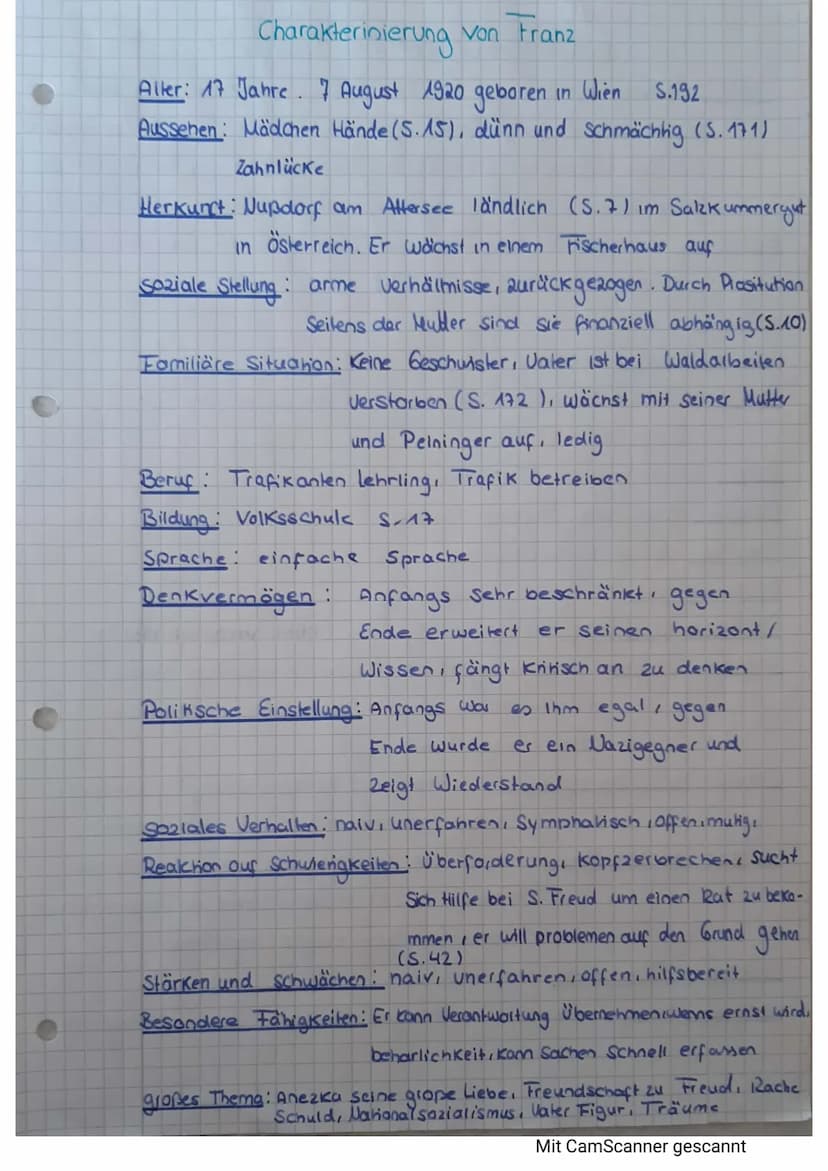 Charakterinierung von Franz
Alter: 17 Jahre. 7 August 1920 geboren in Wien S.192
Aussehen: Mädchen Hände (S.15), dünn und schmächtig (S.171)
Zahnlücke
Herkunft: Nußdorf am Attersee ländlich (S.7) im Salzkummergut
in Österreich. Er wächst in einem Fischerhaus auf
soziale Stellung: arme Verhältnisse, zurückgezogen. Durch Prasitution
Seitens der Mutter sind sie finanziell abhängig (S.10)
Familiäre Situation: Keine Geschwister, Vater ist bei Waldarbeiten
verstorben (S. 172), wächst mit seiner Mutter
und Peininger auf, ledig
Beruf: Trafikanten lehrling, Trafik betreiben
Bildung: Volksschule S.17
Sprache: einfache Sprache
Denkvermögen: Anfangs sehr beschränkt, gegen
Ende erweitert er seinen horizont/
Wissen, fängt kritisch an zu denken
Politische Einstellung: Anfangs war es ihm egal, gegen
Ende wurde er ein Nazigegner und
zeigt Wiederstand
soziales Verhalten: naiv, unerfahren, Symphatisch, offen, mutig,
Reaktion auf Schwierigkeiten: Überforderung, kopfzerbrechen, sucht
Sich Hilfe bei S. Freud um einen Rat zu beko-
mmen, er will problemen auf den Grund gehen
(S.42)
Stärken und schwächen: naiv, unerfahren, offen, hilfsbereit
Besondere Fähigkeiten: Er kann Verantwortung Übernehmen, wenns ernst wird,
beharlichkeit, kann Sachen Schnell erfassen
großes Thema: Anezka seine große Liebe, Freundschaft zu Freud, Rache
Schuld, Nationalsozialismus, Vater Figur, Träume
Mit CamScanner gescannt